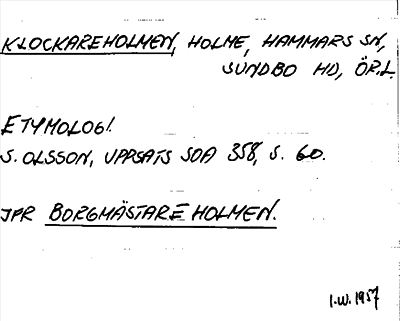 KLOCKAREHOLMEN, HOLME, HAMMARS SN,
SUNDBO HD, ÖR.L
ETYMOLOGI.
S. OLSSON, UPPSATS SOA 358, S. 60.
JFR BORGMÄSTAREHOLMEN.
I.W. 1957